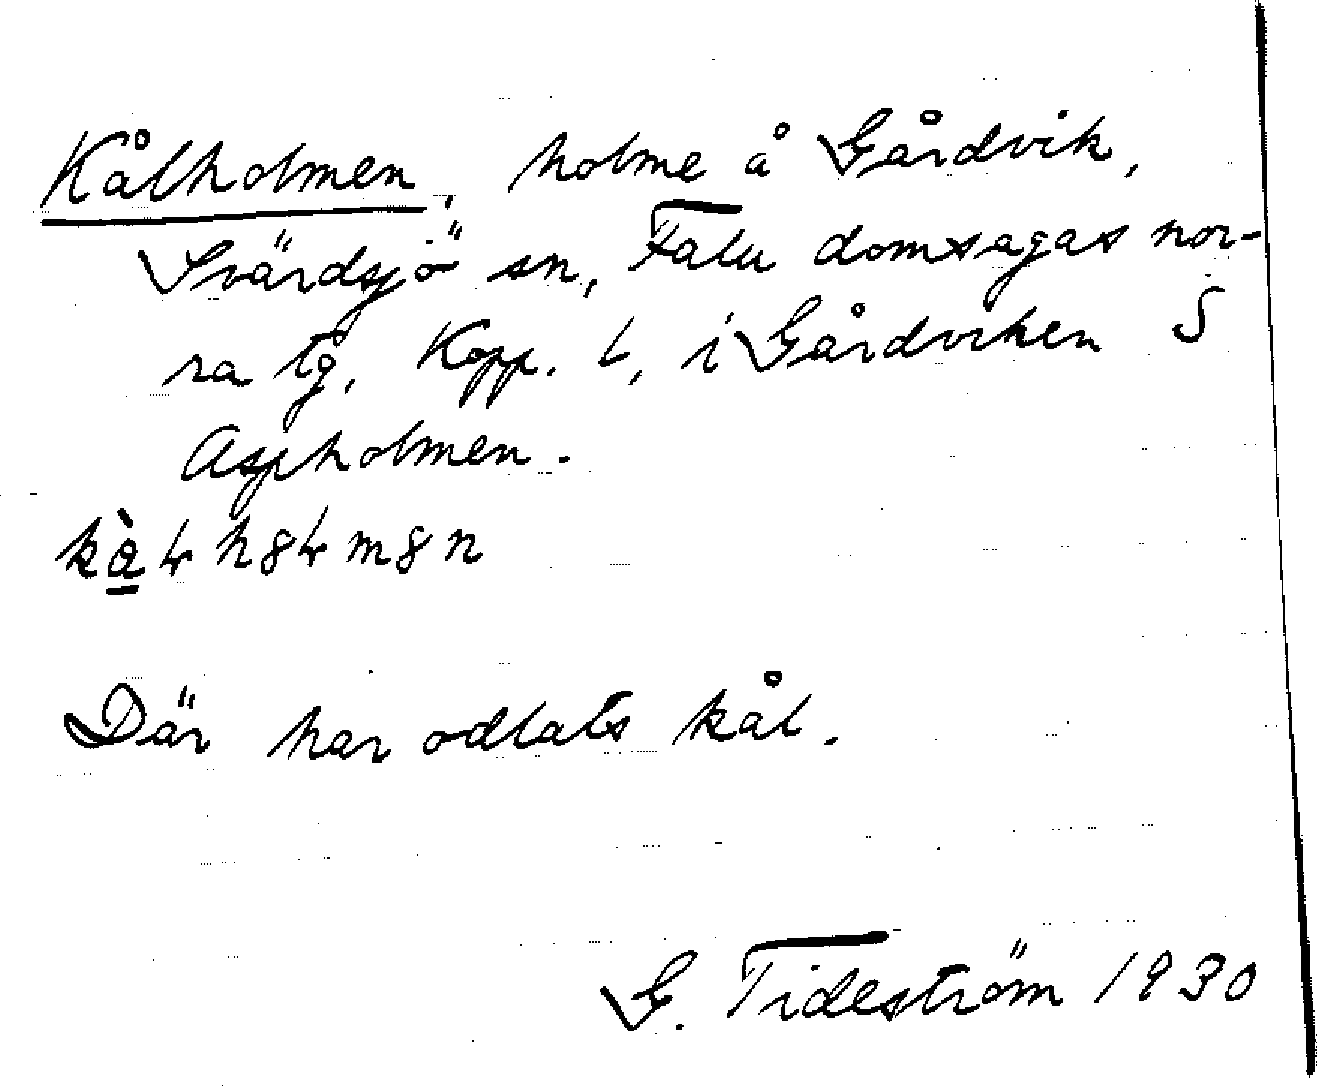 Kålholmen, holme å Gårdvik,
Svärdsjö sn, Falu domsagas nor-
ra tg, Kopp. l, i Gårdviken S
Aspholmen.
Där har odlats kål.
G. Tideström 1930